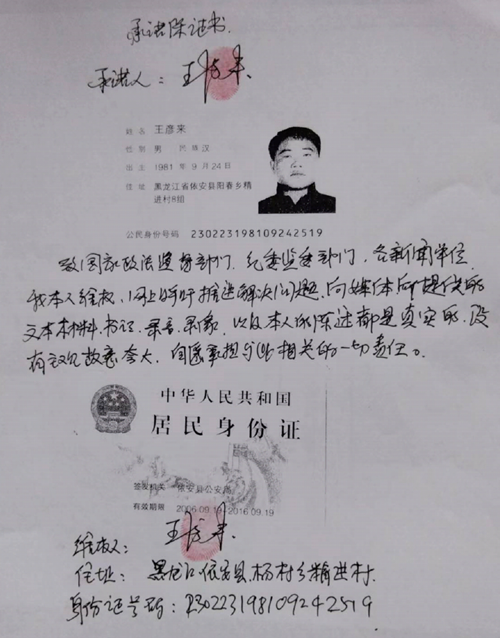 承诺保证书.
承诺人：王彦来.
姓名 王彦来
性别 男 民族 汉
出生 1981 年 9 月 24 日
住址 黑龙江省依安县阳春乡精
进村8组
公民身份号码 230223198109242519
致国家政法监督部门、纪委监察部门、各新闻单位
我本人维权、网上呼吁推进解决问题，向媒体所提供的
文本材料、书证、录音、录像，以及本人的陈述都是真实的，没
有歪曲故意夸大，自愿承担与此相关的一切责任。
中华人民共和国
居民身份证
签发机关 依安县公安局
有效期限 2006.09.19-2016.09.19
王彦来
维权人：
住址：黑龙江依安县杨村乡精进村.
身份证号码：230223198109242519